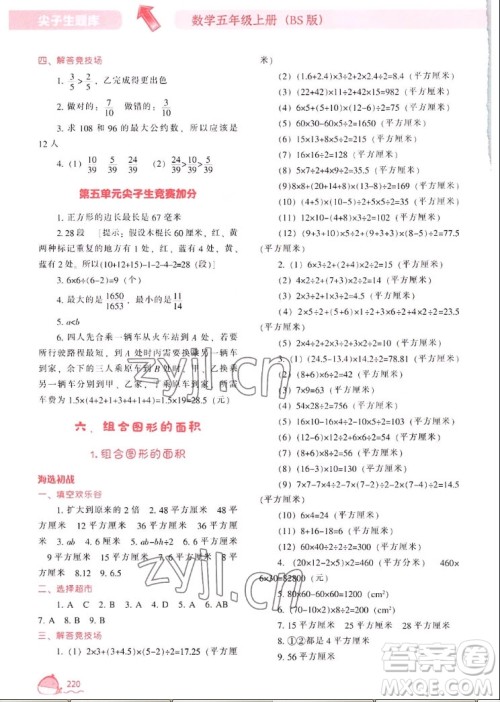 尖子生题库
数学五年级上册（BS版）
四、解答竞技场
1. 3/5>2/5，乙完成得更出色
2. 做对的：7/10 做错的：3/10
3. 求 108 和 96 的最大公约数，所以可住
12 人
4.（1）10/39 5/39（2）24/39>10/39>5/39
第五单元尖子生竞赛加分
1. 正方形的边长最长是 67 毫米
2. 28 段 [提示：假设木棍长 60 厘米，红黄
两种标记重复的地方有 2 处，红、蓝有 4 处，黄、
蓝有 2 处，所以(10+12+15)-1-2-4-2=28（段）]
3. 6×6÷(6-2)=9（个）
4. 最大的是1650/1653，最小的是11/14
5. a<b
6. 四人先合乘一辆车从火车站到 A 处，
所行彼路程最短，到 A 处时可安排乘
余下的三人乘原车到 B 处时，
另一辆车分别到甲、乙家，
车费为 1.5×(4+2+1+3+4+1+4)=1.5×19=28.5（元）
六、组合图形的面积
1.组合图形的面积
海选初战
一、填空欢乐谷
1. 扩大到原来的 2 倍 2. 48 平方厘米 48 平
方厘米 12 平方厘米 36 平方厘米 6 平方厘米
3. 12 4. 6 5. 3 6. 6 7. 12 平方厘米 6 平方厘
米 9. 15 平方厘米
11. 8 12. 6.5
二、选择超市
1. A C 2. D 3. B C 4. B 5. A 6. A
7. C 8. C 9. A
三、解答竞技场
1.（1）2×3+(3+4.5)×(5-2)÷2=17.25（平方厘
米）
（2）(1.6+2.4)×3÷2+2×2.4÷2=8.4（平方厘米）
（3）(22+42)×11÷2+42×30=982（平方厘米）
（4）6×5+(5+10)×(12-6)÷2=75（平方厘米）
（5）60×30-15×20÷2=1650（平方厘米）
（6）15×8+7×12÷2=162（平方厘米）
（7）16×16÷2=128（平方厘米）
（8）7×8-5×7÷2-2×3=35.5（平方厘米）
（9）8×8+(8+20)×14÷2=260（平方厘米）
（10）(4+10)×(5+3)÷2=56（平方厘米）
（11）10×(14+6)÷2=100（平方厘米）
（12）(10+12)×5÷2+(10-5)×9÷2=77.5
（平方厘米）
2.（1）6×3÷2+(2+4)×4÷2=21（平方厘米）
（2）4×4÷2=8（平方厘米）
（3）(2+4)×6÷2=18（平方厘米）
（4）2×5÷2+(2+3+5)×3÷2=20（平方
厘米）
（5）2×4÷2+2×3÷2+10×3÷2=22（平方厘米）
3.（1）(24.5-13.4)×14.4÷2=79.92（平方
厘米）
（2）4.5×4.8-18÷2=12.6（平方厘米）
（3）7×9=63（平方厘米）
（4）54×28÷2=756（平方厘米）
（5）(16+10)×16÷2-10×10÷2=158（平方厘米）
（6）(10-2)×(6-2)=32（平方厘米）
（7）8×8-(8-6)×(8-6)÷2=62（平方厘米）
（8）(8+6)×6÷2=42（平方厘米）
（9）7×7-(7-4)×4÷2-4×4÷2-7×(7-4)÷2=24.5
（平方厘米）
（10）(5+12)×6÷2-6×6÷2=33（平方厘米）
（11）6×4=24（平方厘米）
（12）10×(2+4)÷2=30（平方厘米）
4. (20×12-5×2÷2)×6=460（平方厘米） 460×
6×30=82800（元）
5. 80×60-60×60÷2=1200（cm²）
6. (70-10×2)×8÷2=200（cm²）
7. 15 平方厘米
8. ①②都是 4 平方厘米
9. 56 平方厘米
220
zyjl.cn
zyjl.cn
答案圈
MXQE.COM